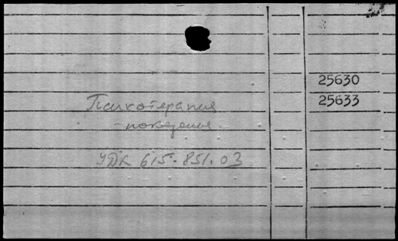 25630
Психотерапия
25633
- поведения.
УДК 615.851.03